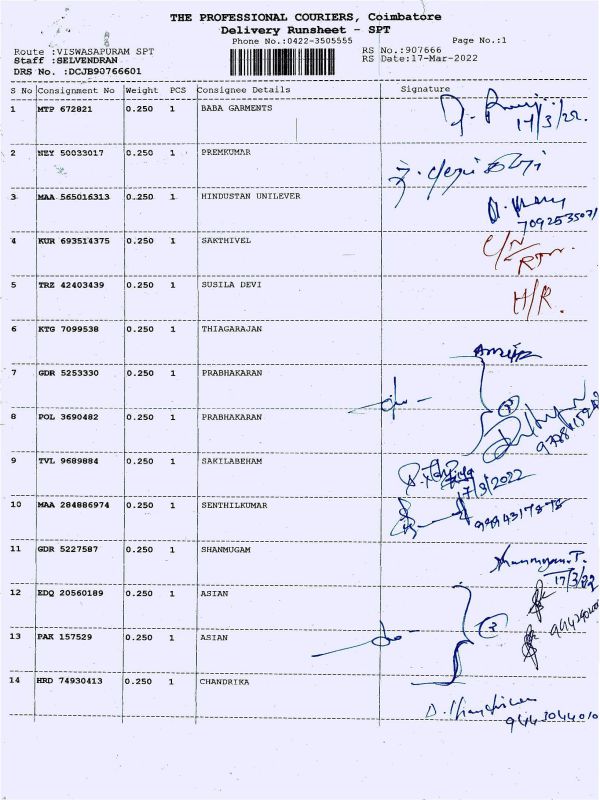 THE PROFESSIONAL COURIERS, Coimbatore
Delivery Runsheet - SPT
Phone No.:0422-3505555 Page No.:1
Route :VISWASAPURAM SPT RS No.:907666
Staff :SELVENDRAN RS Date:17-Mar-2022
DRS No. :DCJB90766601
S No Consignment No Weight PCS Consignee Details Signature
1 MTP 672821 0.250 1 BABA GARMENTS
17/3/22.
2 NEY 50033017 0.250 1 PREMKUMAR
3 MAA 565016313 0.250 1 HINDUSTAN UNILEVER
7092535071
4 KUR 693514375 0.250 1 SAKTHIVEL C/N
RTN.
5 TRZ 42403439 0.250 1 SUSILA DEVI H/R.
6 KTG 7099538 0.250 1 THIAGARAJAN
7 GDR 5253330 0.250 1 PRABHAKARAN
8 POL 3690482 0.250 1 PRABHAKARAN
9 TVL 9689884 0.250 1 SAKILABEHAM
17/3/2022
10 MAA 284886974 0.250 1 SENTHILKUMAR
11 GDR 5227587 0.250 1 SHANMUGAM Shanmugam.T.
17/3/22
12 EDQ 20560189 0.250 1 ASIAN
13 PAK 157529 0.250 1 ASIAN
14 HRD 74930413 0.250 1 CHANDRIKA
9443044010